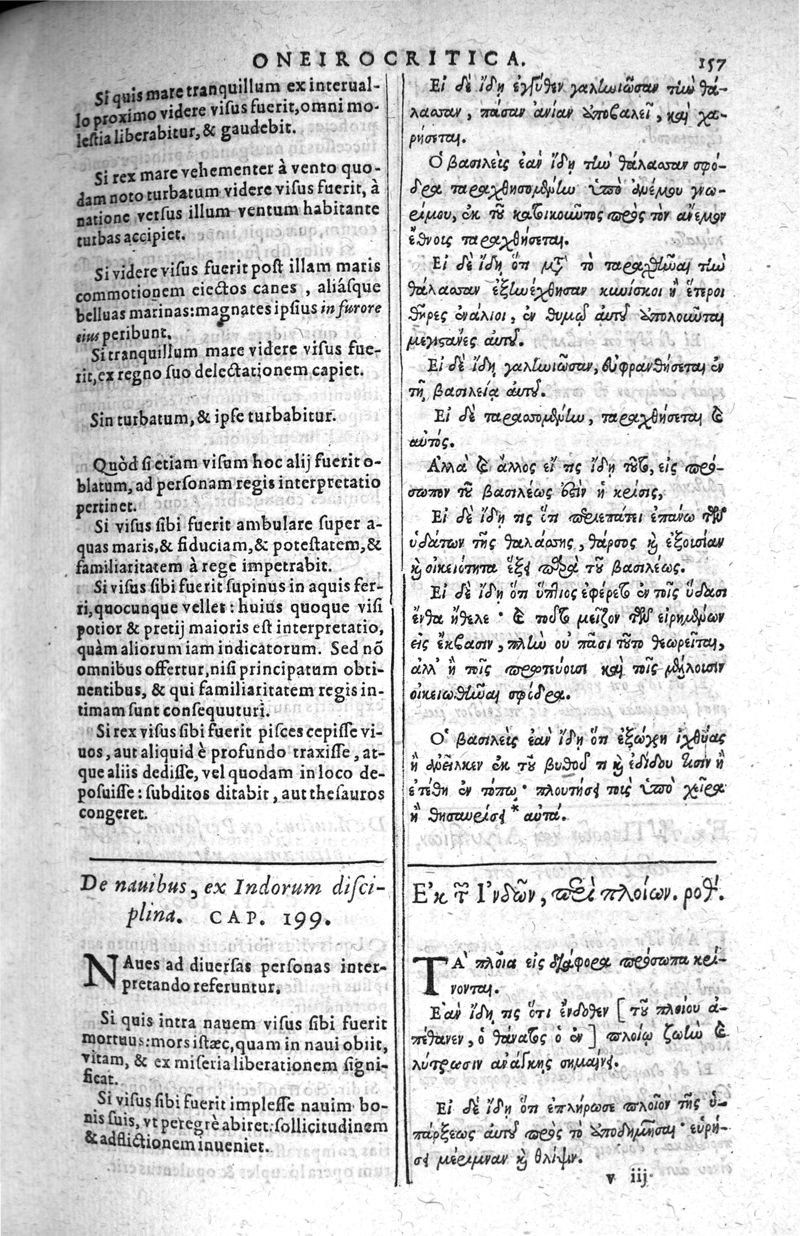 ONEIROCRITICA. 157
Si quis mare tranquillum ex interual-
lo proximo videre visus fuerit, omni mo-
lestia liberabitur, & gaudebit.
Si rex mare vehementer à vento quo-
dam noto turbatum videre visus fuerit, à
natione versus illum ventum habitante
turbas accipiet.
Si videre visus fuerit post illam maris
commotionem eiectos canes, aliásque
belluas marinas: magnates ipsius in furore
eius peribunt.
Si tranquillum mare videre visus fue-
rit, ex regno suo delectationem capiet.
Sin turbatum, & ipse turbabitur.
Quòd si etiam visum hoc alij fuerit o-
blatum, ad personam regis interpretatio
pertinet.
Si visus sibi fuerit ambulare super a-
quas maris, & fiduciam, & potestatem, &
familiaritatem à rege impetrabit.
Si visus sibi fuerit supinus in aquis fer-
ri, quocunque vellet: huius quoque visi
potior & pretij maioris est interpretatio,
quàm aliorum iam indicatorum. Sed nō
omnibus offertur, nisi principatum obti-
nentibus, & qui familiaritatem regis in-
timam sunt consequuturi.
Si rex visus sibi fuerit pisces cepisse vi-
uos, aut aliquid è profundo traxisse, at-
que aliis dedisse, vel quodam in loco de-
posuisse: subditos ditabit, aut thesauros
congeret.
De nauibus, ex Indorum disci-
plina. CAP. 199.
NAues ad diuersas personas inter-
pretando referuntur.
Si quis intra nauem visus sibi fuerit
mortuus: mors istæc, quam in naui obiit,
vitam, & ex miseria liberationem signi-
ficat.
Si visus sibi fuerit implesse nauim bo-
nis suis, vt peregrè abiret: sollicitudinem
& adflictionem inueniet.
Εἰ δὲ ἴδῃ ἐγγύθεν γαληνιῶσαν τὴν θά-
λασσαν, πᾶσαν ἀνίαν ἀποβαλεῖ, καὶ χα-
ρήσεται.
Ὁ βασιλεὺς ἐὰν ἴδῃ τὴν θάλασσαν σφό-
δρα ταραχθησομένην ὑπὸ ἀνέμου γνω-
ρίμου, ἐκ τοῦ κατοικοῦντος πρὸς τὸν ἄνεμον
ἔθνοις ταραχθήσεται.
Εἰ δὲ ἴδῃ ὅτι μετὰ τὸ ταραχθῆναι τὴν
θάλασσαν ἐξηνέχθησαν κυνίσκοι ἢ ἕτεροι
θῆρες ἐνάλιοι, ἐν θυμῷ αὐτοῦ ἀπολοῦνται
μεγιστᾶνες αὐτοῦ.
Εἰ δὲ ἴδῃ γαληνιῶσαν, εὐφρανθήσεται ἐν
τῇ βασιλείᾳ αὐτοῦ.
Εἰ δὲ ταρασσομένην, ταραχθήσεται καὶ
αὐτός.
Ἀλλὰ καὶ ἄλλος εἴ τις ἴδῃ τοῦτο, εἰς πρό-
σωπον τοῦ βασιλέως ἐστὶν ἡ κρίσις,
Εἰ δὲ ἴδῃ τις ὅτι περιεπάτει ἐπάνω τῶν
ὑδάτων τῆς θαλάσσης, θάρσος καὶ ἐξουσίαν
καὶ οἰκειότητα ἕξει παρὰ τοῦ βασιλέως.
Εἰ δὲ ἴδῃ ὅτι ὕπτιος ἐφέρετο ἐν τοῖς ὕδασι
ἔνθα ἤθελε· καὶ τοῦτο μεῖζον τῶν εἰρημένων
εἰς ἔκβασιν, πλὴν οὐ πᾶσι τοῦτο θεωρεῖται,
ἀλλ' ἢ τοῖς πρωτεύουσι καὶ τοῖς μέλλουσιν
οἰκειωθῆναι σφόδρα.
Ὁ βασιλεὺς ἐὰν ἴδῃ ὅτι ἐξώγρη ἰχθύας
ἢ ἀνεῖλκεν ἐκ τοῦ βυθοῦ τι καὶ ἐδίδου τισὶν ἢ
ἐτέθη ἐν τόπῳ· πλουτήσει τοὺς ὑπὸ χεῖρα
ἢ θησαυρίσει * αὐτά.
Ἐκ τῶν Ἰνδῶν, περὶ πλοίων. ρϟθʹ.
ΤΑ πλοῖα εἰς διάφορα πρόσωπα κρί-
νονται.
Ἐὰν ἴδῃ τις ὅτι ἔνδοθεν [τοῦ πλοίου ἀ-
πέθανεν, ὁ θάνατος ὁ ἐν] πλοίῳ ζωὴν καὶ
λύτρωσιν ἀνάγκης σημαίνει.
Εἰ δὲ ἴδῃ ὅτι ἐπλήρωσε πλοῖον τῆς ὑ-
πάρξεως αὐτοῦ πρὸς τὸ ἀποδημῆσαι· εὑρή-
σει μέριμναν καὶ θλίψιν.
v iij